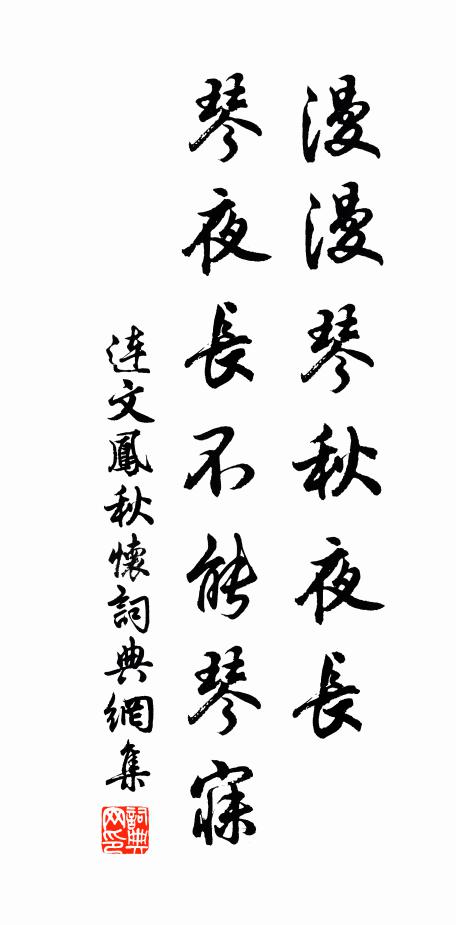 漫漫琴秋夜長
琴夜長不能琴寐
連文鳳秋懷詞典網集
詞典网印